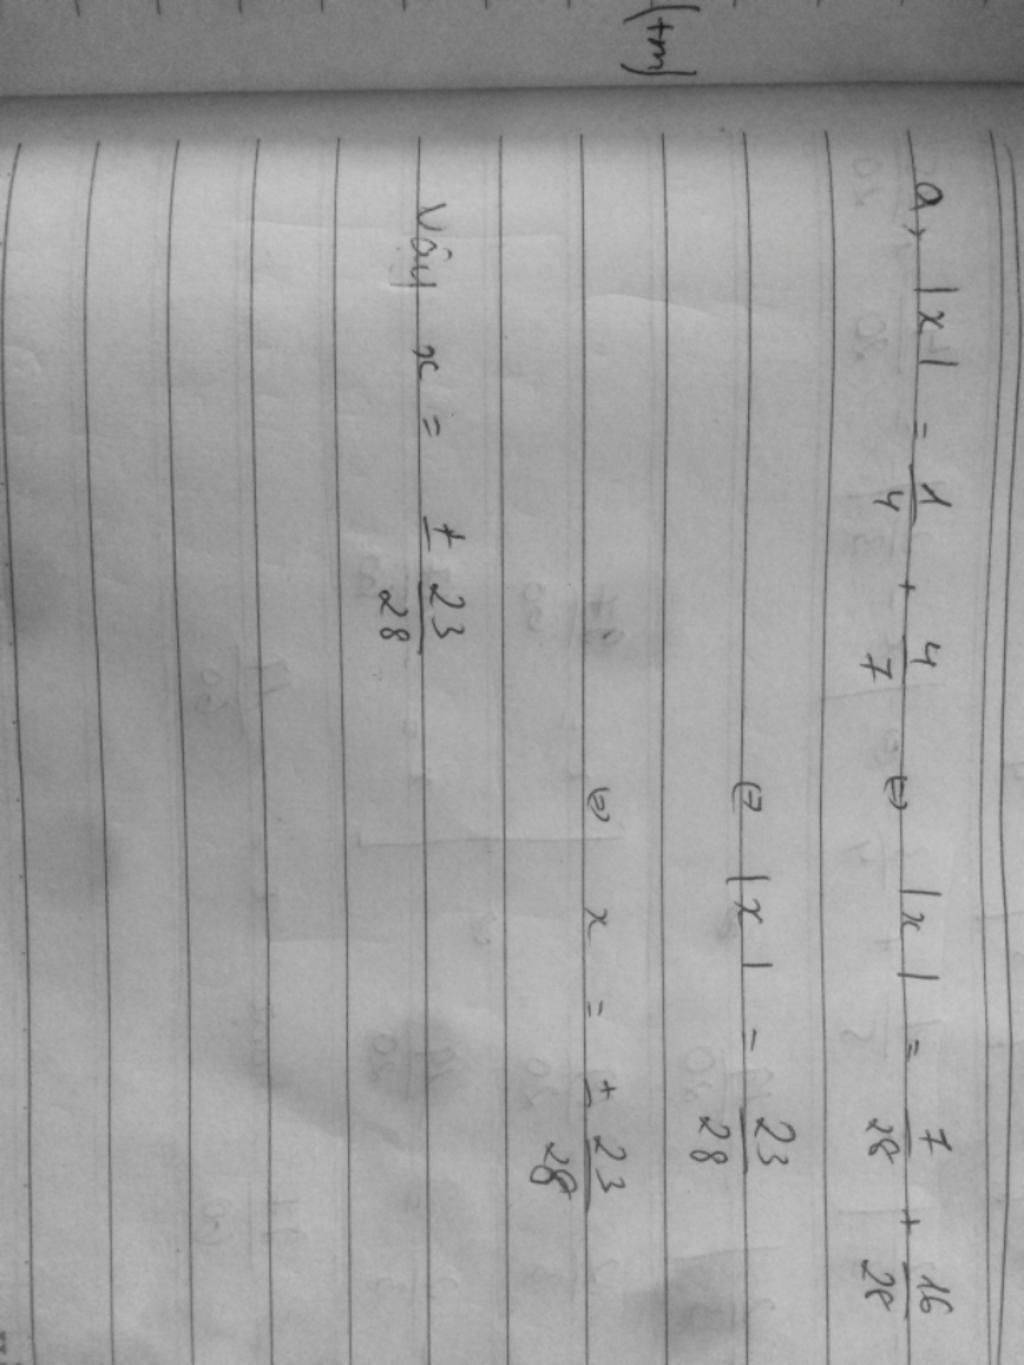 (tm)
a, |x| = 1/4 + 4/7 ⇔ |x| = 7/28 + 16/28
⇔ |x| = 23/28
⇔ x = ± 23/28
Vậy x = ± 23/28